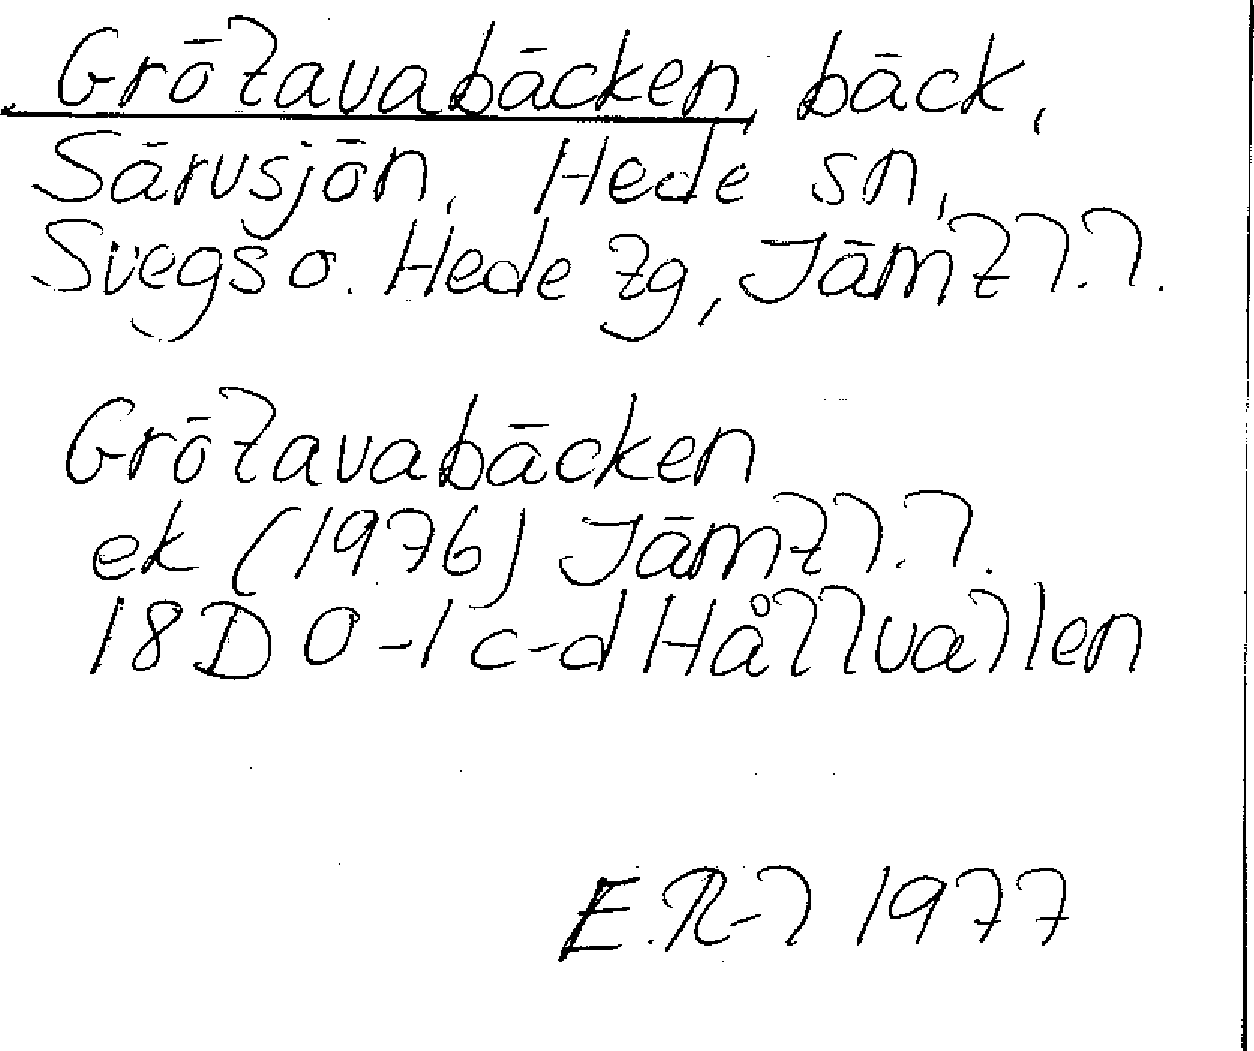 Grötavabäcken, bäck,
Särvsjön, Hede sn,
Svegs o. Hede tg, Jämtl.l.
Grötavabäcken
ek (1976) Jämtl.l.
18D 0-1 c-d Hållvallen
E.R-l 1977